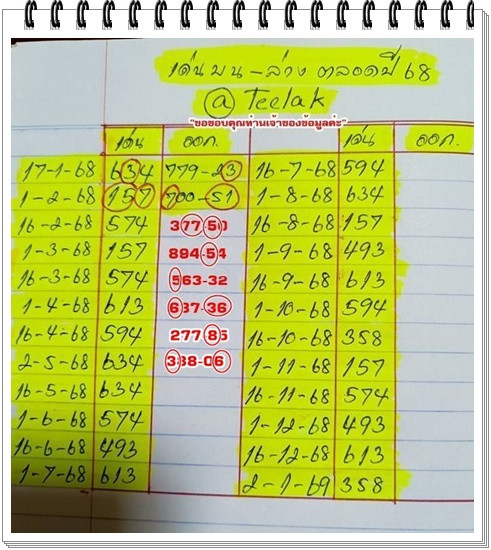 เด่น บน - ล่าง ตลอดปี 68
@ Teelak
"ขอขอบคุณท่านเจ้าของข้อมูลค่ะ"
เด่น ออก. เด่น ออก.
17-1-68 634 779-23 16-7-68 594
1-2-68 157 700-51 1-8-68 634
16-2-68 574 377-50 16-8-68 157
1-3-68 157 894-54 1-9-68 493
16-3-68 574 563-32 16-9-68 613
1-4-68 613 637-36 1-10-68 594
16-4-68 594 277 85 16-10-68 358
2-5-68 634 388-06 1-11-68 157
16-5-68 634 16-11-68 574
1-6-68 574 1-12-68 493
16-6-68 493 16-12-68 613
1-7-68 613 2-1-69 358